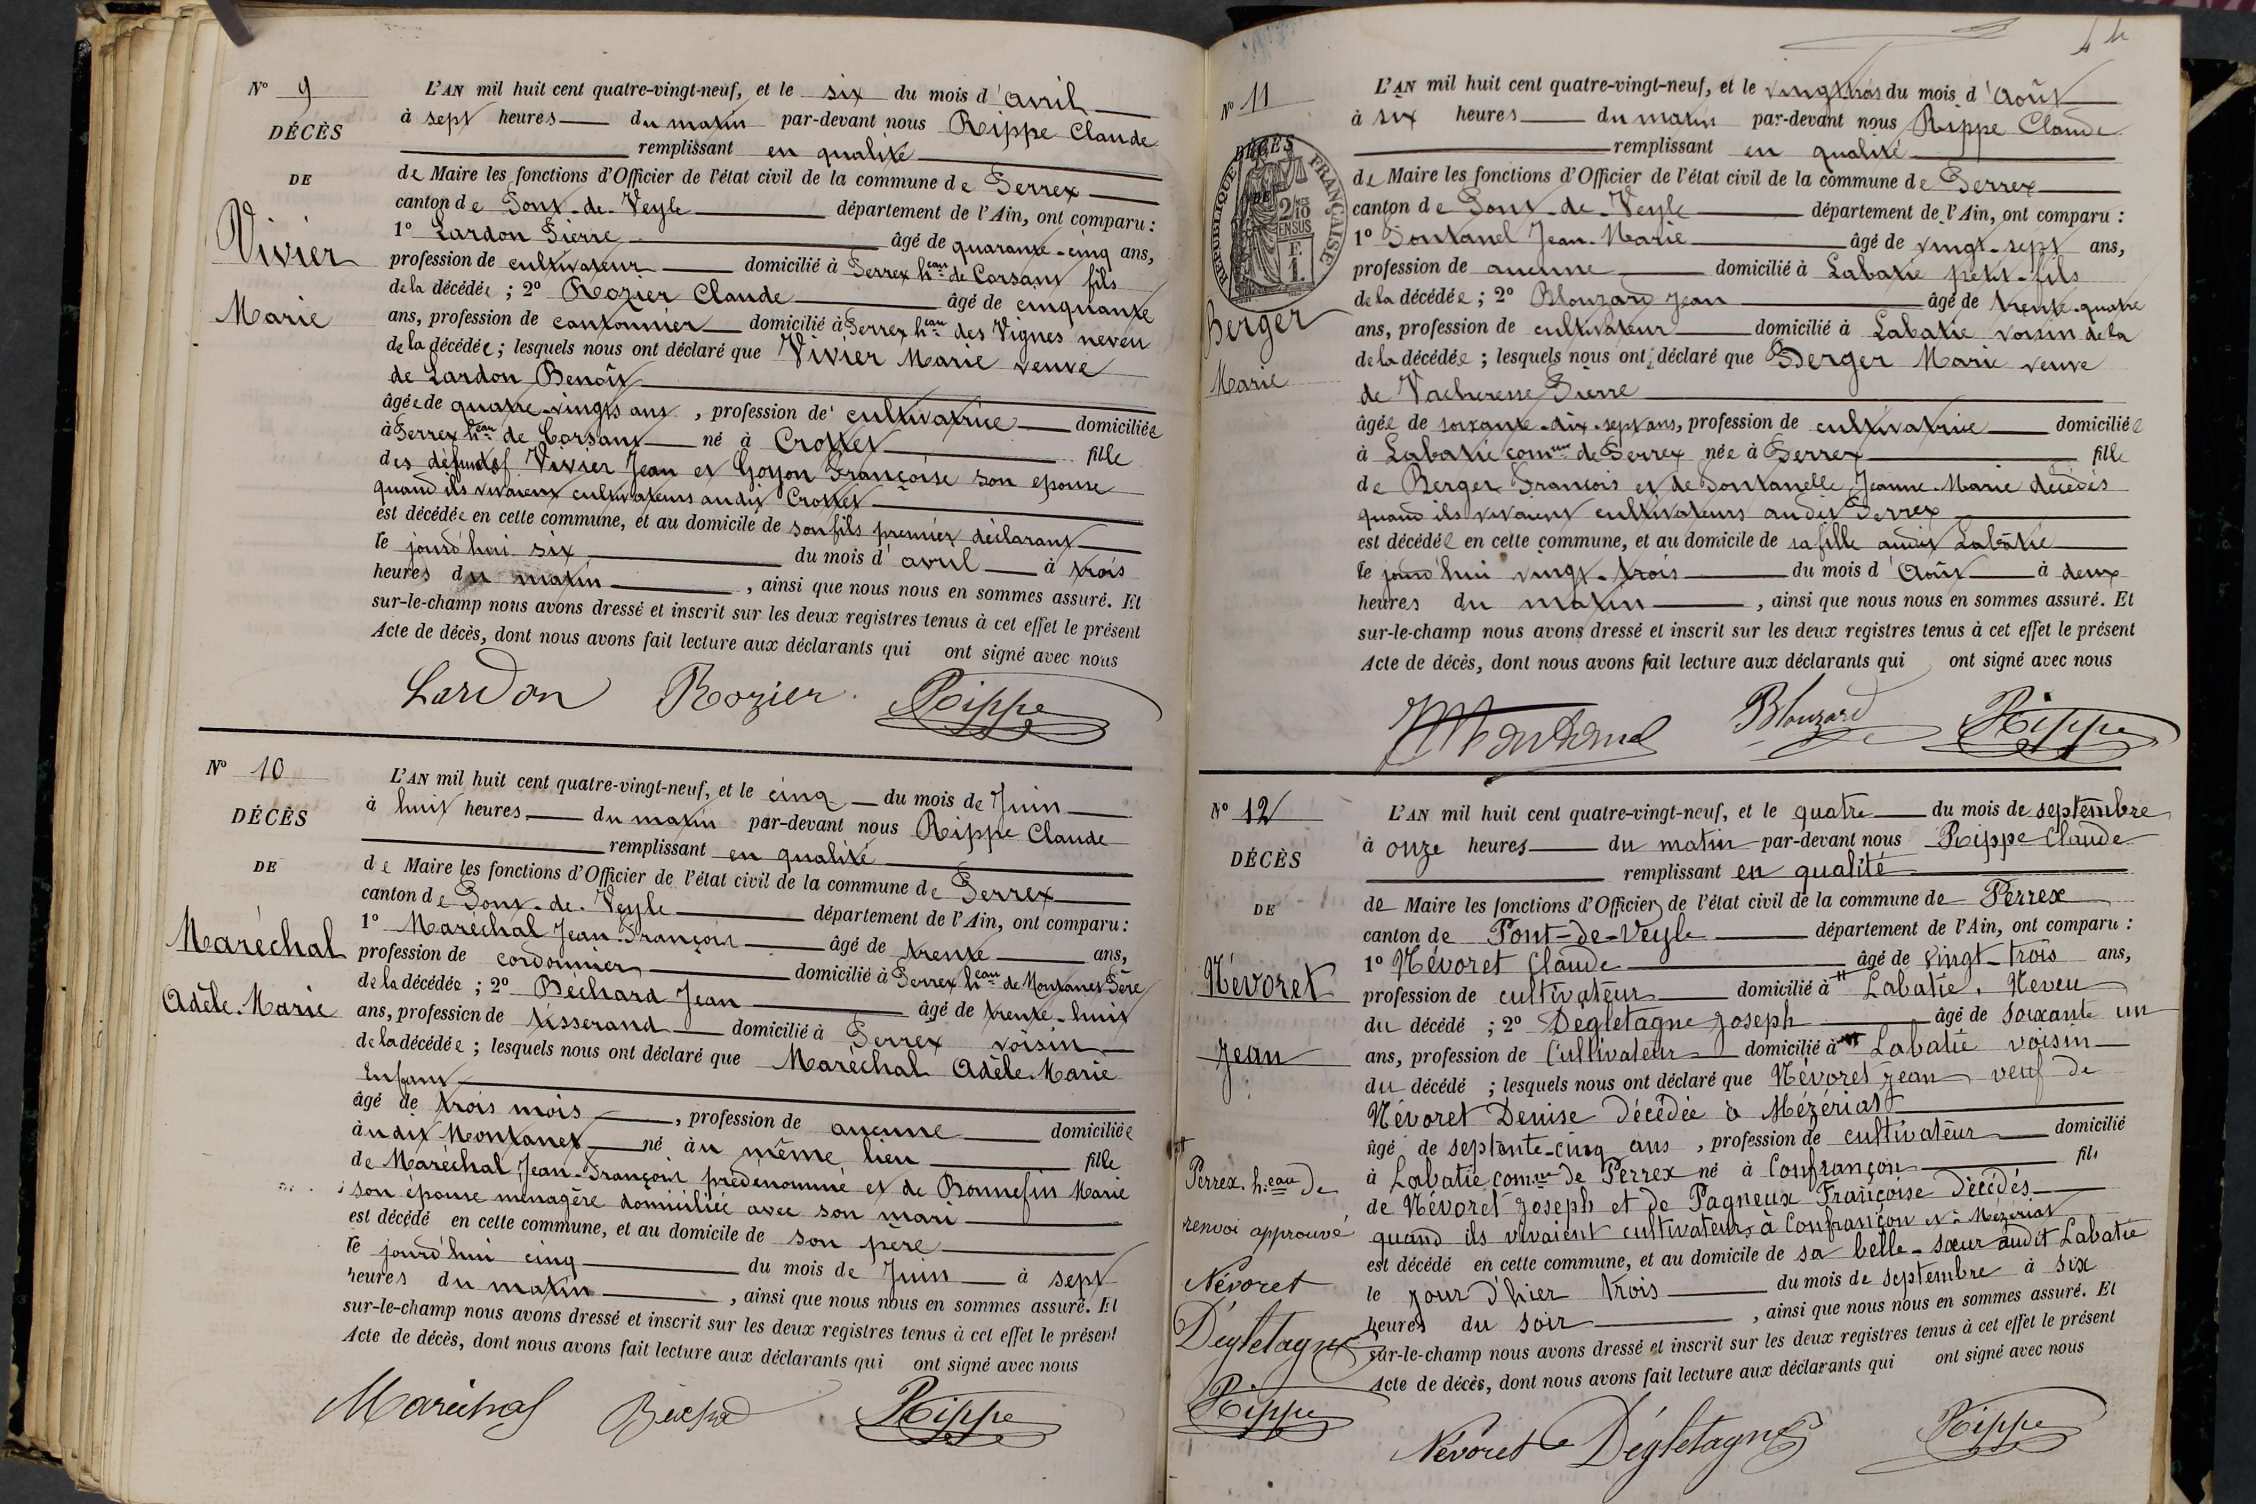 N° 9
DÉCÈS
DE
Vivier
Marie
L'AN mil huit cent quatre-vingt-neuf, et le six du mois d'avril
à sept heures du matin par-devant nous Rippe Claude
remplissant en qualité
de Maire les fonctions d'Officier de l'état civil de la commune de Perrex
canton de Pont-de-Veyle département de l'Ain, ont comparu :
1° Lardon Pierre âgé de quarante-cinq ans,
profession de cultivateur domicilié à Perrex heau de Corsant fils
de la décédée ; 2° Rozier Claude âgé de cinquante
ans, profession de cantonnier domicilié à Perrex heau des Vignes neveu
de la décédée ; lesquels nous ont déclaré que Vivier Marie veuve
de Lardon Benoît
âgée de quatre-vingts ans, profession de cultivatrice domiciliée
à Perrex heau de Corsant né à Crottet fille
des défunts Vivier Jean et Goyon Françoise son epouse
quand ils vivaient cultivateurs audit Crottet
est décédée en cette commune, et au domicile de son fils premier déclarant
le jourd'hui six du mois d'avril à trois
heures du matin, ainsi que nous nous en sommes assuré. Et
sur-le-champ nous avons dressé et inscrit sur les deux registres tenus à cet effet le présent
Acte de décès, dont nous avons fait lecture aux déclarants qui ont signé avec nous
Lardon Rozier Rippe
N° 10
DÉCÈS
DE
Maréchal
Adèle-Marie
L'AN mil huit cent quatre-vingt-neuf, et le cinq du mois de Juin
à huit heures du matin par-devant nous Rippe Claude
remplissant en qualité
de Maire les fonctions d'Officier de l'état civil de la commune de Perrex
canton de Pont-de-Veyle département de l'Ain, ont comparu :
1° Maréchal Jean-François âgé de trente ans,
profession de cordonnier domicilié à Perrex heau de Montanet Père
de la décédée ; 2° Bechard Jean âgé de trente-huit
ans, profession de tisserand domicilié à Perrex voisin
de la décédée ; lesquels nous ont déclaré que Maréchal Adèle-Marie
Enfant
âgé de trois mois, profession de aucune domiciliée
àudit Montanet né àu même lieu fille
de Maréchal Jean-François prédénommé et de Bonnefin Marie
son épouse ménagère domiciliée avec son mari
est décédé en cette commune, et au domicile de son père
le jourd'hui cinq du mois de Juin à sept
heures du matin, ainsi que nous nous en sommes assuré. Et
sur-le-champ nous avons dressé et inscrit sur les deux registres tenus à cet effet le présent
Acte de décès, dont nous avons fait lecture aux déclarants qui ont signé avec nous
Maréchal Béchard Rippe
N° 11
DÉCÈS
DE
RÉPUBLIQUE FRANÇAISE
2/10 EN SUS
Berger
Marie
L'AN mil huit cent quatre-vingt-neuf, et le vingt-trois du mois d'Août
à six heures du matin par-devant nous Rippe Claude
remplissant en qualité
de Maire les fonctions d'Officier de l'état civil de la commune de Perrex
canton de Pont-de-Veyle département de l'Ain, ont comparu :
1° Pontanel Jean-Marie âgé de vingt-sept ans,
profession de aucune domicilié à Labatie petit-fils
de la décédée ; 2° Blouzard Jean âgé de trente-quatre
ans, profession de cultivateur domicilié à Labatie voisin de la
de la décédée ; lesquels nous ont déclaré que Berger Marie veuve
de Vacheresse Pierre
âgée de soixante-dix-sept ans, profession de cultivatrice domiciliée
à Labatie comune de Perrex née à Perrex fille
de Berger François et de Pontanelle Jeanne-Marie décédés
quand ils vivaient cultivateurs audit Perrex
est décédée en cette commune, et au domicile de sa fille audit Labatie
le jourd'hui vingt-trois du mois d'Août à deux
heures du matin, ainsi que nous nous en sommes assuré. Et
sur-le-champ nous avons dressé et inscrit sur les deux registres tenus à cet effet le présent
Acte de décès, dont nous avons fait lecture aux déclarants qui ont signé avec nous
Blouzard Rippe
N° 12
DÉCÈS
DE
Névoret
Jean
L'AN mil huit cent quatre-vingt-neuf, et le quatre du mois de septembre
à onze heures du matin par-devant nous Rippe Claude
remplissant en qualité
de Maire les fonctions d'Officier de l'état civil de la commune de Perrex
canton de Pont-de-Veyle département de l'Ain, ont comparu :
1° Névoret Claude âgé de vingt-trois ans,
profession de cultivateur domicilié à Labatie. Neveu
du décédé ; 2° Degletagne Joseph âgé de soixante un
ans, profession de Cultivateur domicilié à Labatie voisin
du décédé ; lesquels nous ont déclaré que Névoret Jean veuf de
Névoret Denise décédée à Mézériat
âgé de septante-cinq ans, profession de cultivateur domicilié
à Labatie comune de Perrex né à Confrançon fils
de Névoret Joseph et de Pagneux Françoise décédés
quand ils vivaient cultivateurs à Confrançon et à Mézériat
est décédé en cette commune, et au domicile de sa belle-sœur audit Labatie
le jour d'hier trois du mois de septembre à six
heures du soir, ainsi que nous nous en sommes assuré. Et
sur-le-champ nous avons dressé et inscrit sur les deux registres tenus à cet effet le présent
Acte de décès, dont nous avons fait lecture aux déclarants qui ont signé avec nous
Perrex. heau de
renvoi approuvé
Névoret
Dégletagne
Rippe
Névoret Dégletagne Rippe